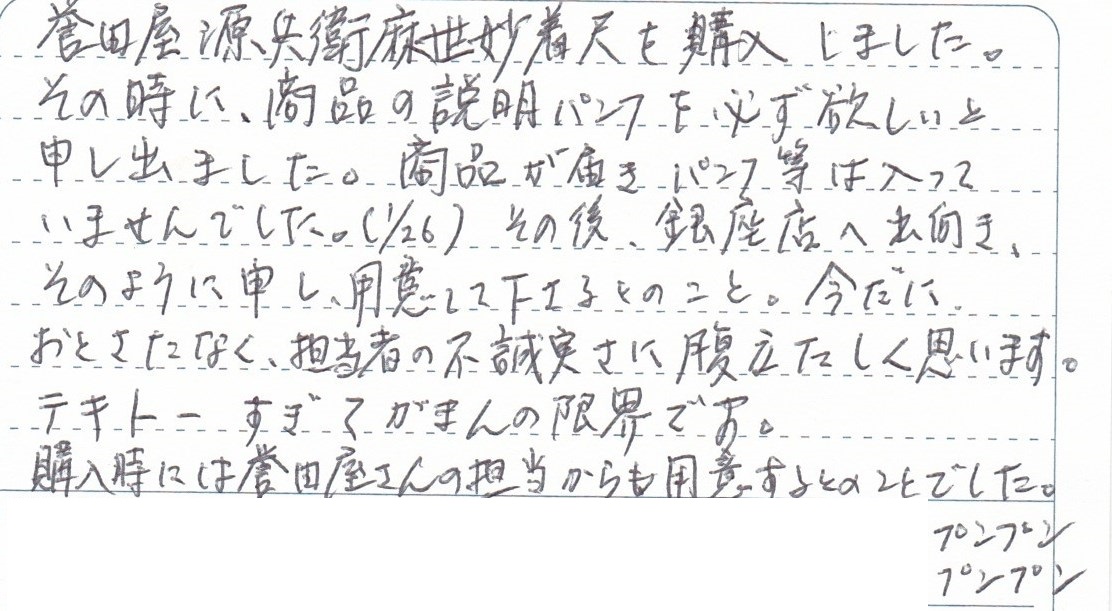 誉田屋源兵衛麻世妙着尺を購入しました。
その時に、商品の説明パンフを必ず欲しいと
申し出ました。商品が届きパンフ等は入って
いませんでした。(1/26) その後、銀座店へ出向き、
そのように申し、用意して下さるとのこと。今だに
おとさたなく、担当者の不誠実さに腹立たしく思います。
テキトーすぎてがまんの限界です。
購入時には誉田屋さんの担当からも用意するとのことでした。
プンプン
プンプン